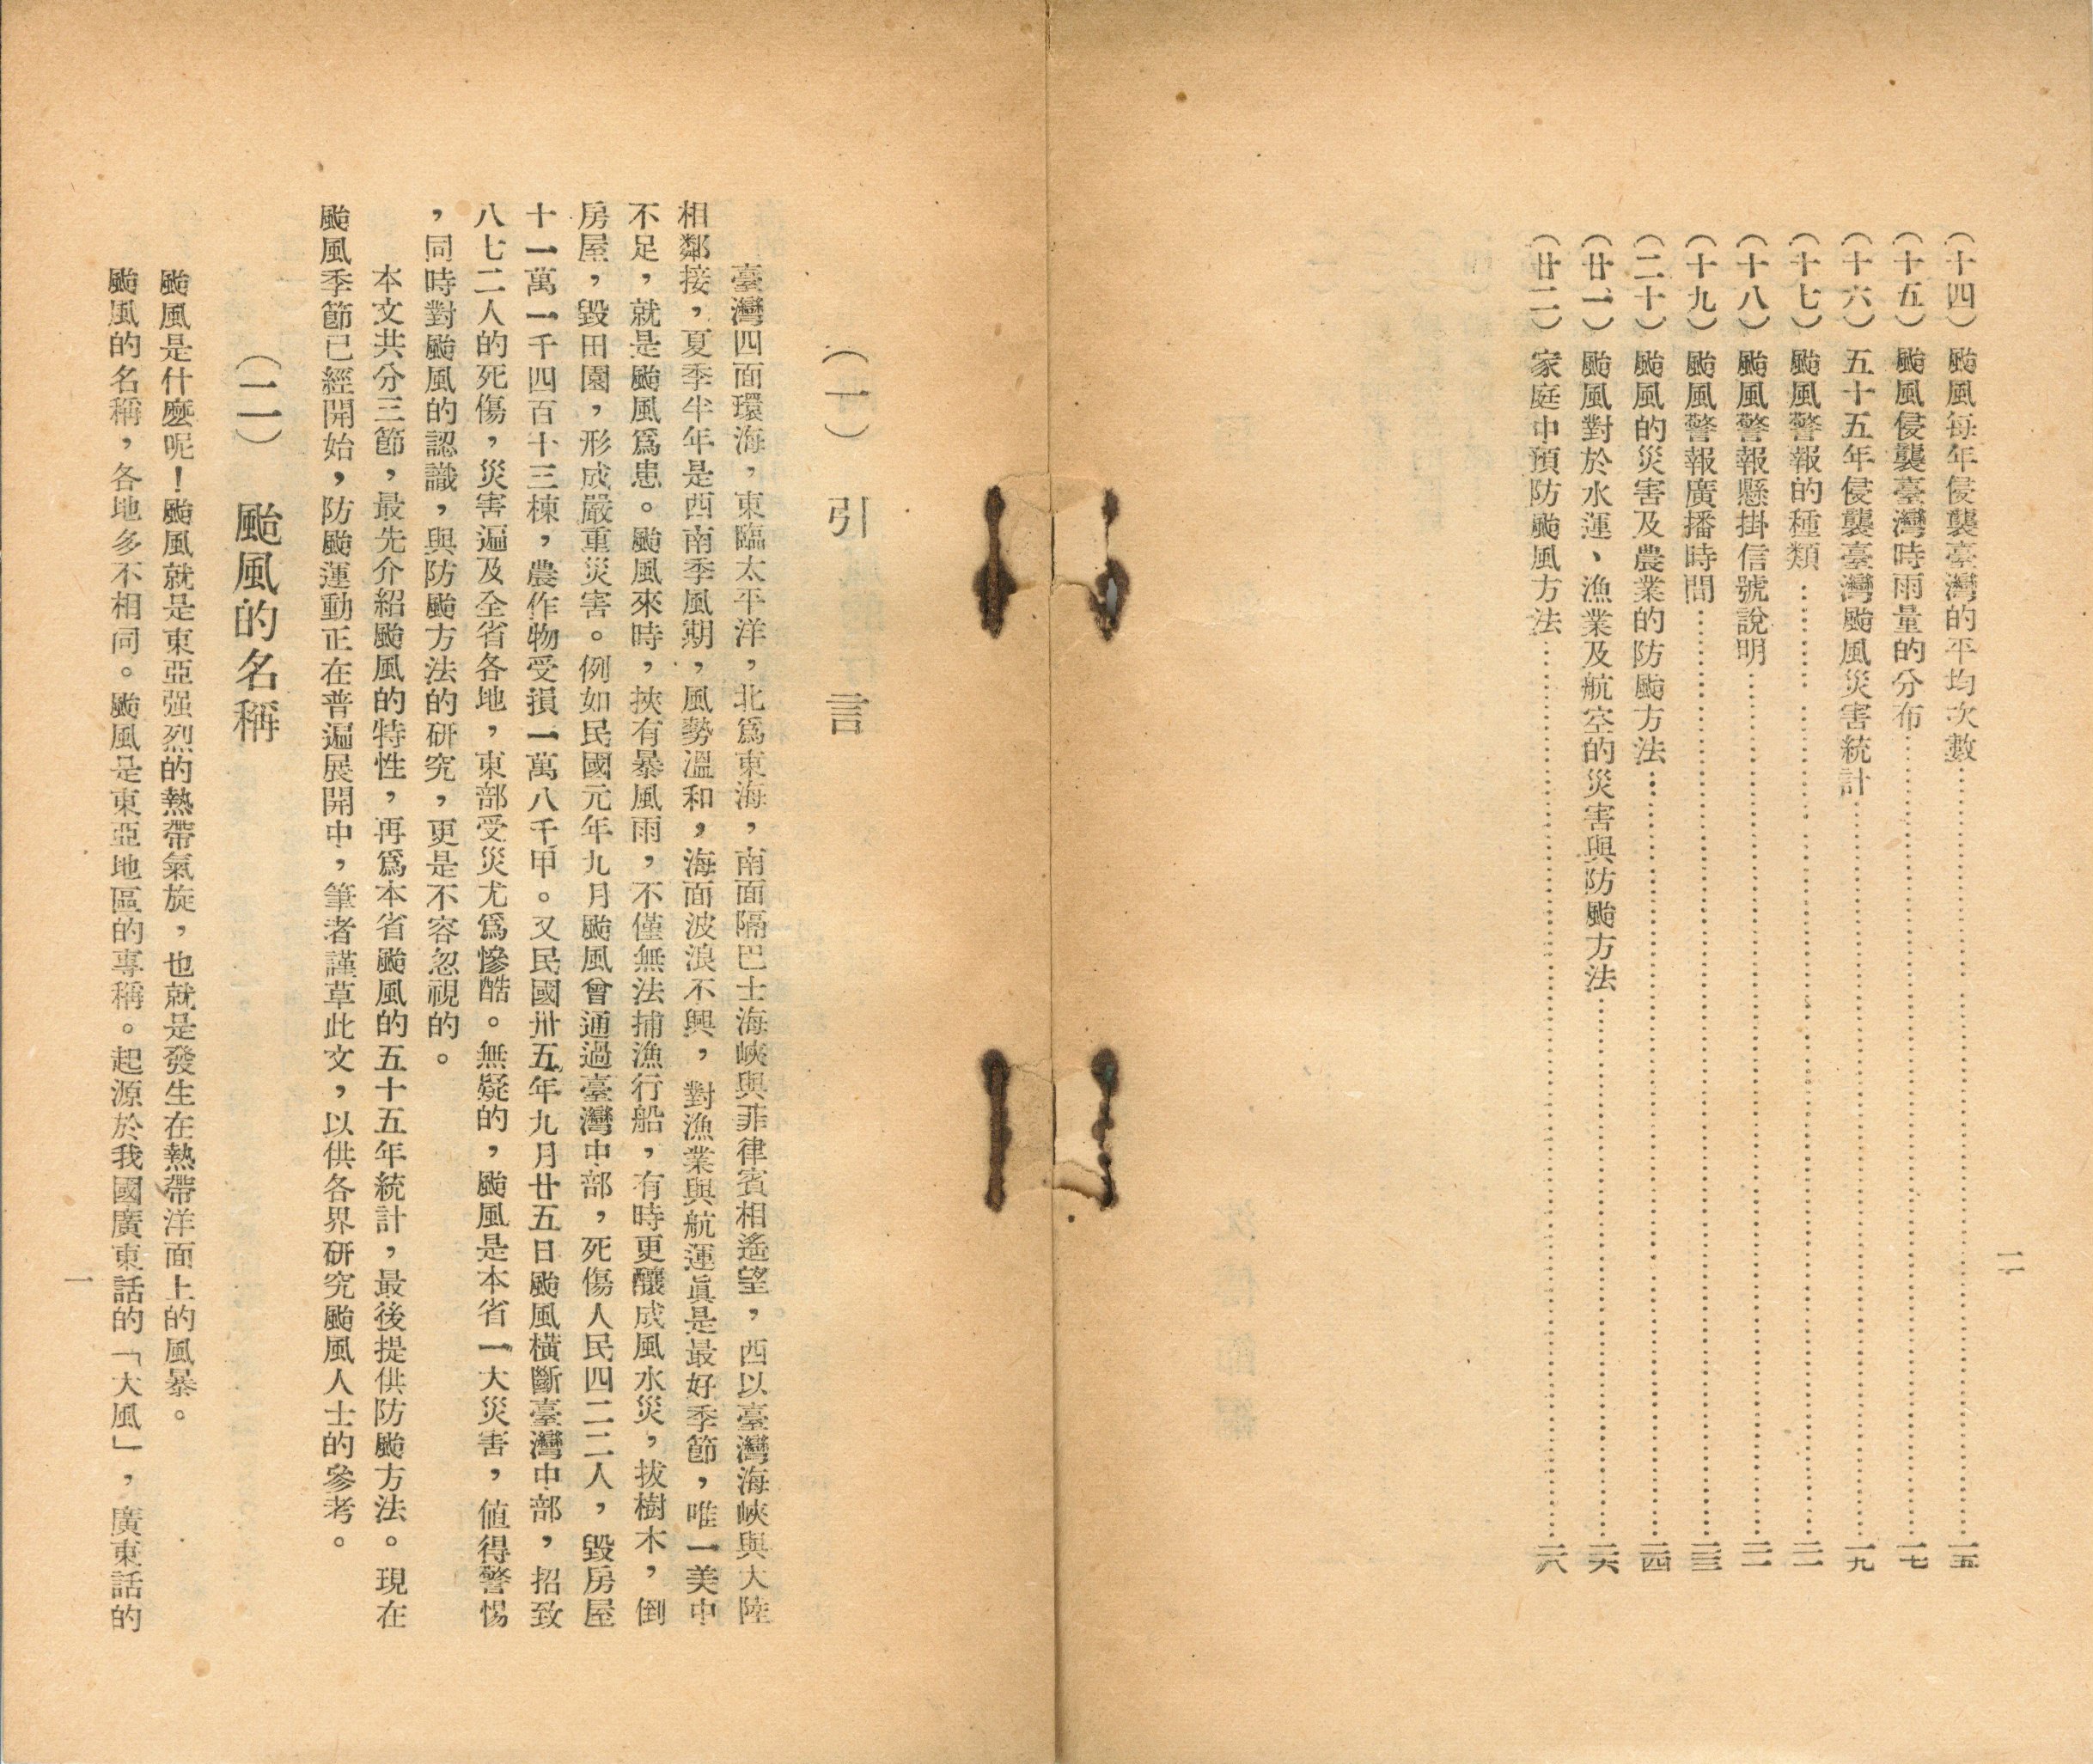 二
(十四) 颱風每年侵襲臺灣的平均次數……一五
(十五) 颱風侵襲臺灣時雨量的分布……一七
(十六) 五十五年侵襲臺灣颱風災害統計……一九
(十七) 颱風警報的種類……二一
(十八) 颱風警報懸掛信號說明……二二
(十九) 颱風警報廣播時間……二三
(二十) 颱風的災害及農業的防颱方法……二四
(廿一) 颱風對於水運、漁業及航空的災害與防颱方法……二六
(廿二) 家庭中預防颱風方法……二八
(一) 引言
臺灣四面環海，東臨太平洋，北爲東海，南面隔巴士海峽與菲律賓相遙望，西以臺灣海峽與大陸
相鄰接，夏季半年是西南季風期，風勢溫和，海面波浪不興，對漁業與航運眞是最好季節，唯一美中
不足，就是颱風爲患。颱風來時，挾有暴風雨，不僅無法捕漁行船，有時更釀成風水災，拔樹木，倒
房屋，毀田園，形成嚴重災害。例如民國元年九月颱風曾通過臺灣中部，死傷人民四二二人，毀房屋
十一萬一千四百十三棟，農作物受損一萬八千甲。又民國卅五年九月廿五日颱風橫斷臺灣中部，招致
八七二人的死傷，災害遍及全省各地，東部受災尤爲慘酷。無疑的，颱風是本省一大災害，値得警惕
，同時對颱風的認識，與防颱方法的研究，更是不容忽視的。
本文共分三節，最先介紹颱風的特性，再爲本省颱風的五十五年統計，最後提供防颱方法。現在
颱風季節已經開始，防颱運動正在普遍展開中，筆者謹草此文，以供各界研究颱風人士的參考。
(二) 颱風的名稱
颱風是什麼呢！颱風就是東亞强烈的熱帶氣旋，也就是發生在熱帶洋面上的風暴。
颱風的名稱，各地多不相同。颱風是東亞地區的專稱。起源於我國廣東話的「大風」，廣東話的
一